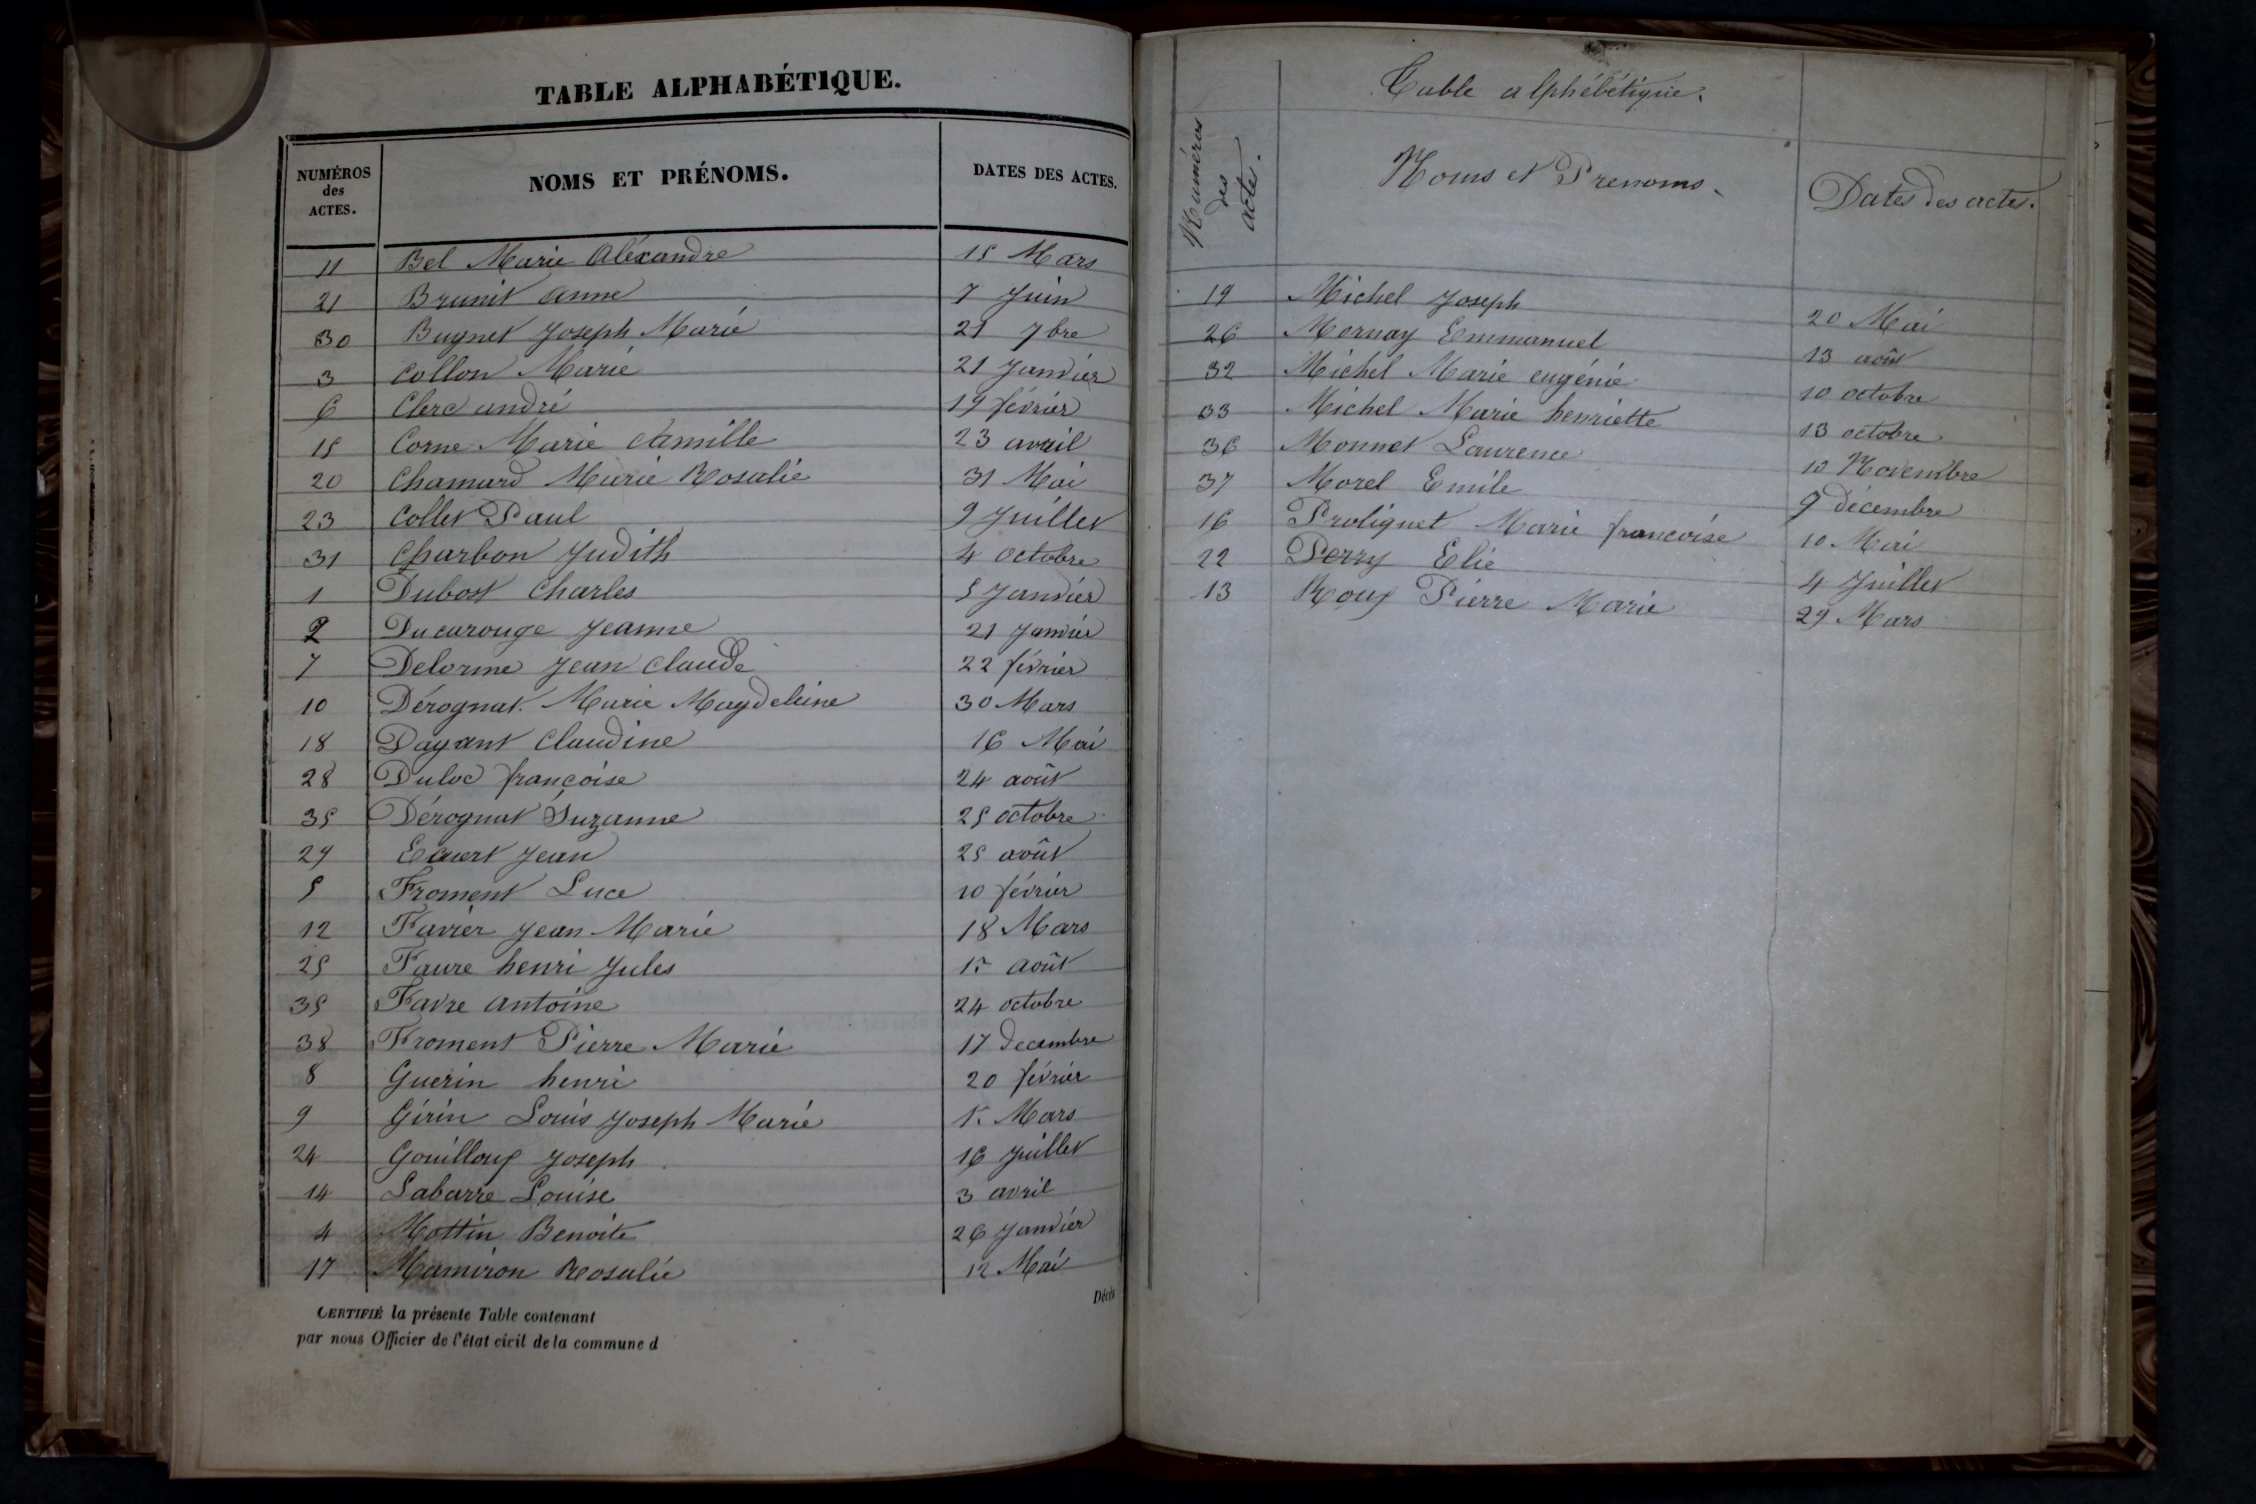 TABLE ALPHABÉTIQUE.
NUMÉROS des ACTES. NOMS ET PRÉNOMS. DATES DES ACTES.
11 Bel Marie Aléxandre 15 Mars
21 Brunit anne 7 Juin
30 Bugnet Joseph Marie 21 7bre
3 Collon Marie 21 Janvier
6 Clerc andré 19 février
15 Corne Marie Camille 23 avril
20 Chamard Marie Rosalie 31 Mai
23 Collet Paul 9 Juillet
31 Charbon Judith 4 octobre
1 Dubost Charles 5 Janvier
2 Ducarouge Jeanne 21 Janvier
7 Delorme Jean Claude 22 février
10 Dérognat Marie Magdeleine 30 Mars
18 Dayant Claudine 16 Mai
28 Duloc françoise 24 août
35 Dérognat Suzanne 25 octobre
29 Jean 25 août
5 Froment Luce 10 février
12 Favier Jean Marie 18 Mars
25 Faure henri Jules 1r août
35 Favre antoine 24 octobre
38 Froment Pierre Marie 17 decembre
8 Guerin henri 20 février
9 Girin Louis Joseph Marie 1r Mars
24 Gouilloux Joseph 16 Juillet
14 Labarre Louise 3 avril
4 Mottin Benoite 26 Janvier
17 Mamiron Rosalie 12 Mai
Décès
CERTIFIÉ la présente Table contenant
par nous Officier de l'état civil de la commune d
Table alphébétique.
Numéros des acte. Noms et Prenoms. Dates des actes.
19 Michel Joseph 20 Mai
26 Mornay Emmanuel 13 août
32 Michel Marie eugénie 10 octobre
33 Michel Marie henriette 13 octobre
36 Monnet Laurence 10 Novembre
37 Morel Emile 9 décembre
16 Proliguet Marie françoise 10 Mai
22 Perry Elie 4 Juillet
13 Roux Pierre Marie 29 Mars